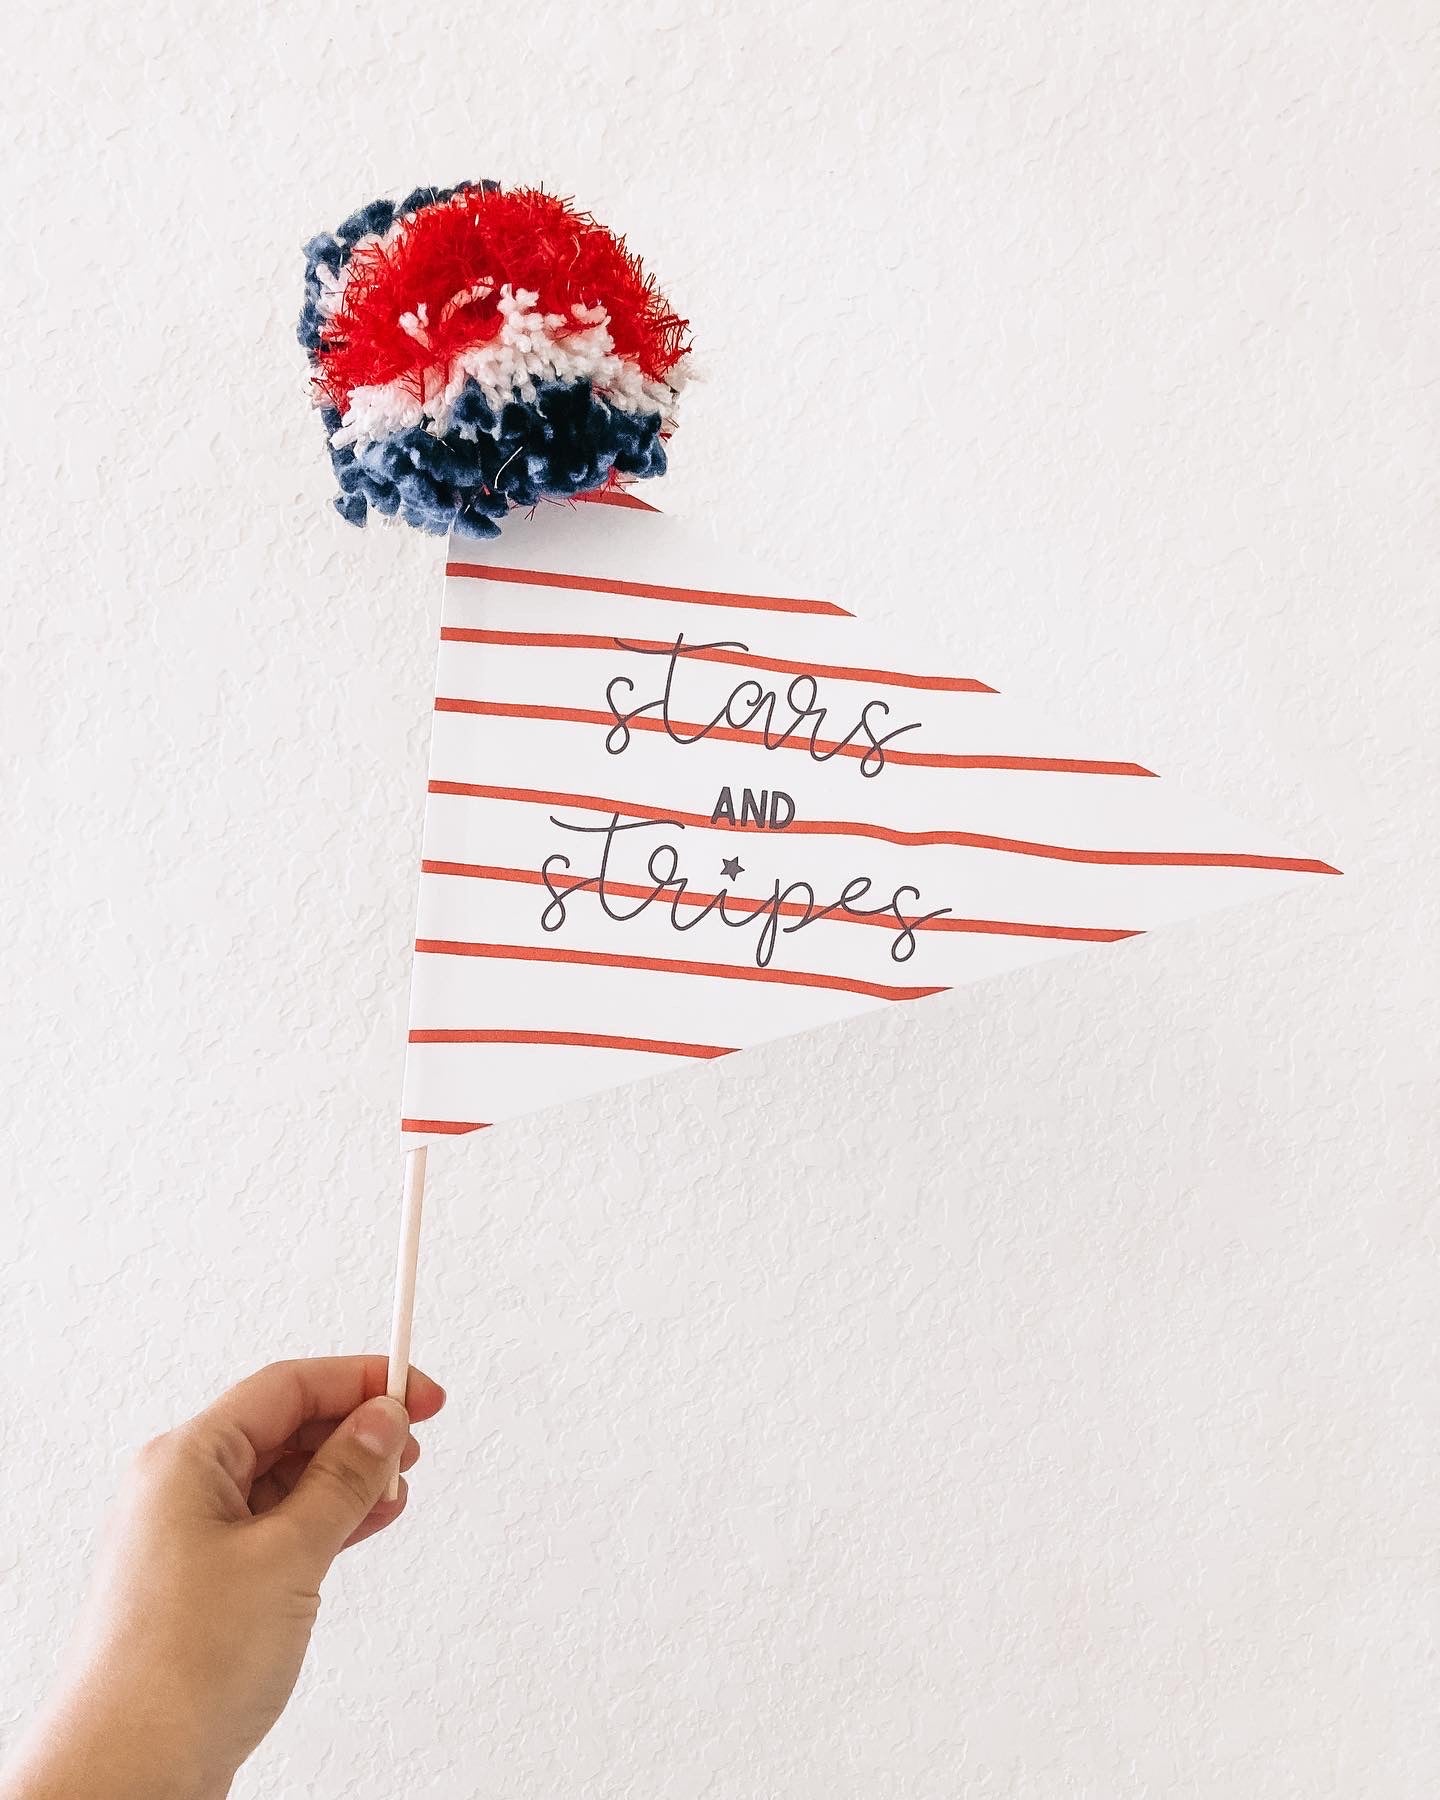 stars
AND
stripes